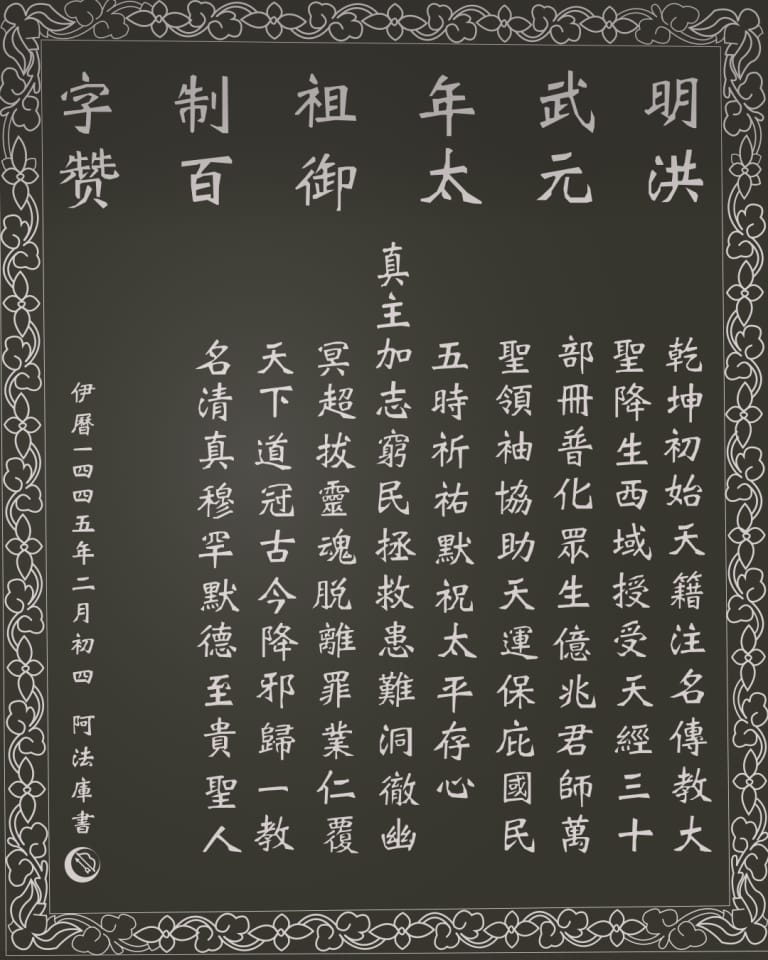 明洪
武元
年太
祖御
制百
字赞
乾坤初始天籍注名傳教大
聖降生西域授受天經三十
部冊普化眾生億兆君師萬
聖領袖協助天運保庇國民
五時祈祐默祝太平存心
真主加志窮民拯救患難洞徹幽
冥超拔靈魂脱離罪業仁覆
天下道冠古今降邪歸一教
名清真穆罕默德至貴聖人
伊曆一四四五年二月初四 阿法庫書